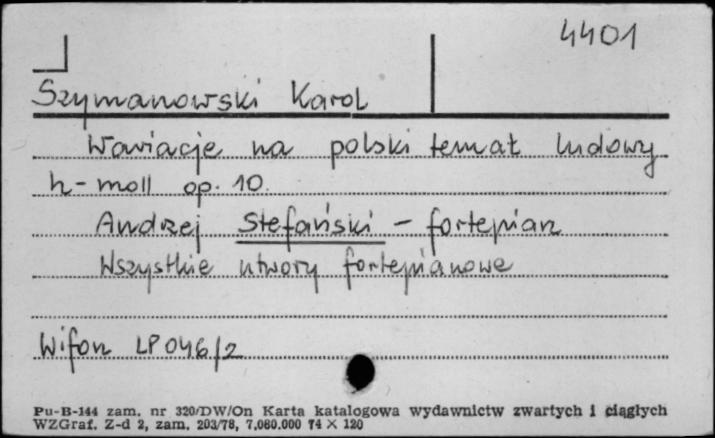 4401
Szymanowski Karol
Wariacje na polski temat ludowy
h-moll op. 10.
Andrzej Stefański - fortepian
Wszystkie utwory fortepianowe
Wifon LP 046/2
Pu-B-144 zam. nr 320/DW/On Karta katalogowa wydawnictw zwartych i ciągłych
WZGraf. Z-d 2, zam. 203/78, 7.060.000 74 × 120